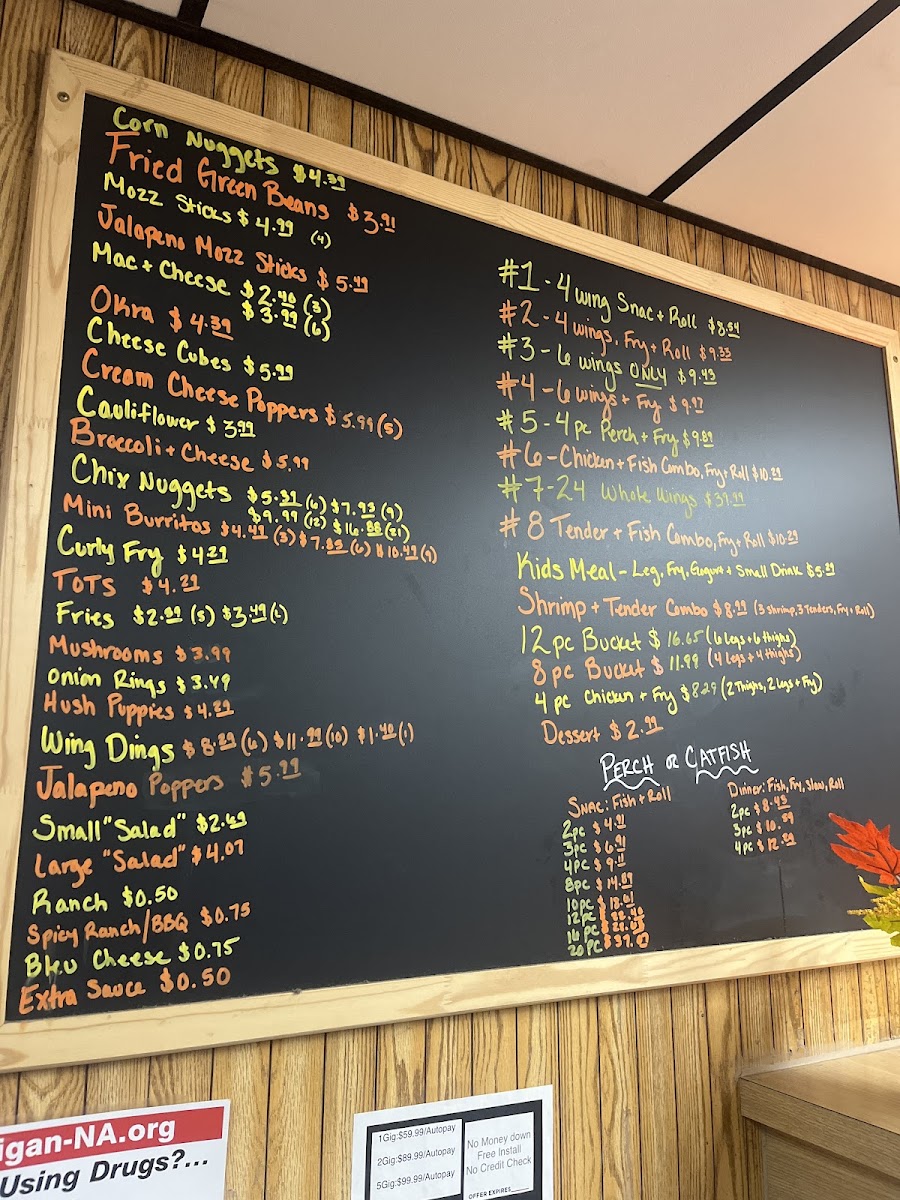 Corn Nuggets $4.39
Fried Green Beans $3.91
Mozz Sticks $4.99 (4)
Jalapeno Mozz Sticks $5.49
Mac + Cheese $2.40 (3)
$3.99 (6)
Okra $4.39
Cheese Cubes $5.99
Cream Cheese Poppers $5.99 (5)
Cauliflower $3.99
Broccoli + Cheese $5.99
Chix Nuggets $5.31 (6) $7.93 (9)
$9.99 (12) $16.88 (21)
Mini Burritos $4.49 (3) $7.89 (6) $10.49 (9)
Curly Fry $4.29
TOTS $4.29
Fries $2.89 (S) $3.49 (L)
Mushrooms $3.99
Onion Rings $3.49
Hush Puppies $4.29
Wing Dings $8.29 (6) $11.99 (10) $1.40 (1)
Jalapeno Poppers $5.99
Small "Salad" $2.69
Large "Salad" $4.07
Ranch $0.50
Spicy Ranch/BBQ $0.75
Bleu Cheese $0.75
Extra Sauce $0.50
#1 - 4 wing Snac + Roll $8.54
#2 - 4 wings, Fry + Roll $9.33
#3 - 6 wings ONLY $9.43
#4 - 6 wings + Fry $9.97
#5 - 4pc Perch + Fry $9.89
#6 - Chicken + Fish Combo, Fry + Roll $10.29
#7 - 24 Whole Wings $39.99
#8 Tender + Fish Combo, Fry + Roll $10.29
Kids Meal - Leg, Fry, Gogurt + Small Drink $5.29
Shrimp + Tender Combo $8.99 (3 shrimp, 3 Tenders, Fry + Roll)
12pc Bucket $16.65 (6 legs + 6 thighs)
8pc Bucket $11.99 (4 Legs + 4 thighs)
4 pc Chicken + Fry $8.29 (2 Thighs, 2 Legs + Fry)
Dessert $2.99
PERCH OR CATFISH
Snac: Fish + Roll
2pc $4.91
3pc $6.91
4pc $9.11
8pc $14.89
10pc $18.01
12pc
16pc
20pc $37.
Dinner: Fish, Fry, Slaw, Roll
2pc $8.49
3pc $10.59
4pc $12.89
igan-NA.org
Using Drugs?...
1Gig:$59.99/Autopay
2Gig:$89.99/Autopay
5Gig:$99.99/Autopay
No Money down
Free Install
No Credit Check
OFFER EXPIRES